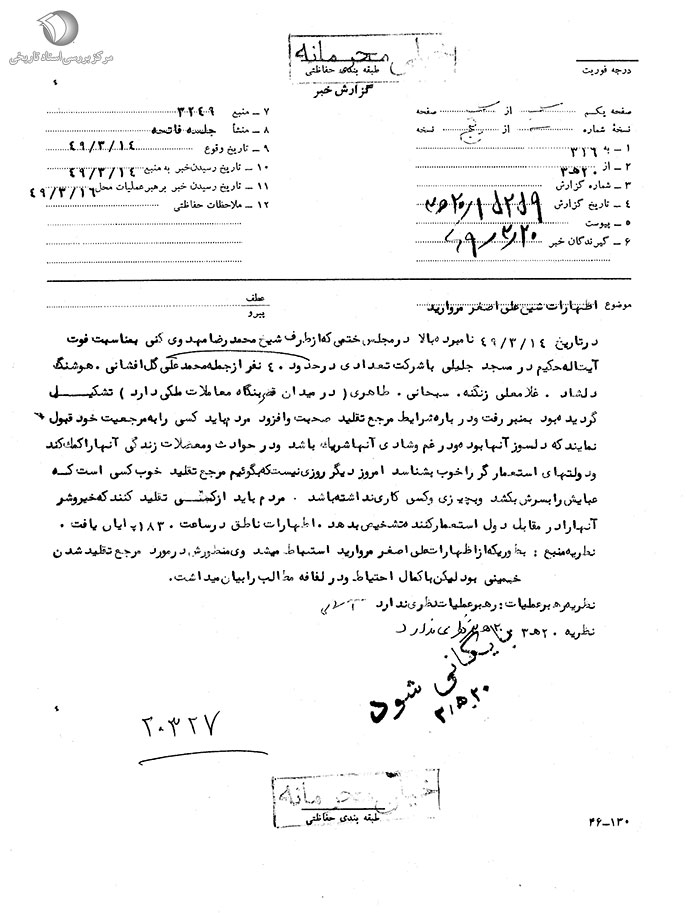 مرکز بررسی اسناد تاریخی
خیلی محرمانه
طبقه بندی حفاظتی
گزارش خبر
درجه فوریت
صفحه یکم از یک صفحه
نسخهٔ شماره از پنج نسخه
۱ ــ به ۳۱۶
۲ ــ از ۲۰ هـ ۳
۳ ــ شماره گزارش
۴ ــ تاریخ گزارش
۵ ــ پیوست
۶ ــ گیرندگان خبر
۷ ــ منبع ۳۲۴۹
۸ ــ منشأ جلسه فاتحه
۹ ــ تاریخ وقوع ۴۹/۳/۱۴
۱۰ ــ تاریخ رسیدن خبر به منبع ۴۹/۳/۱۴
۱۱ ــ تاریخ رسیدن خبر برهبر عملیات محل ۴۹/۳/۱۶
۱۲ ــ ملاحظات حفاظتی
موضوع اظهارات شیخ علی اصغر مروارید
عطف
پیرو
درتاریخ ۴۹/۳/۱۴ نامبرده بالا در مجلس ختمی که از طرف شیخ محمد رضا مهدوی کنی بمناسبت فوت
آیت اله حکیم در مسجد جلیلی با شرکت تعدادی در حدود ۴۰ نفر از جمله محمد علی گل افشانی . هوشنگ
دلشاد . غلامعلی زنگنه . سبحانی . طاهری ( در میدان بنگاه معاملات ملکی دارد ) تشکیل
گردیده بود بمنبر رفت و در باره شرایط مرجع تقلید صحبت و افزود مردم باید کسی را به مرجعیت خود قبول
نمایند که دلسوز آنها بوده و در غم و شادی آنها شریک باشد و در حوادث و معضلات زندگی آنها را کمک کند
و دولتهای استعمار گر را خوب بشناسد امروز دیگر روزی نیست که بگوئیم مرجع تقلید خوب کسی است که
عبایش را بسرش بکشد و بچیزی و کسی کاری نداشته باشد . مردم باید از کسی تقلید کنند که خیر و شر
آنها را در مقابل دول استعمار کننده تشخیص بدهد . اظهارات ناطق در ساعت ۱۸۳۰ پایان یافت .
نظریه منبع : بطوریکه از اظهارات علی اصغر مروارید استنباط میشد وی منظورش در مورد مرجع تقلید شدن
خمینی بود لیکن با کمال احتیاط و در لفافه مطالب را بیان میداشت .
نظریه رهبر عملیات : رهبر عملیات نظری ندارد
نظریه ۲۰ هـ ۳ نظری ندارد
بایگانی شود
۲۰۳۲۷
خیلی محرمانه
طبقه بندی حفاظتی
۴۶-۱۳۰